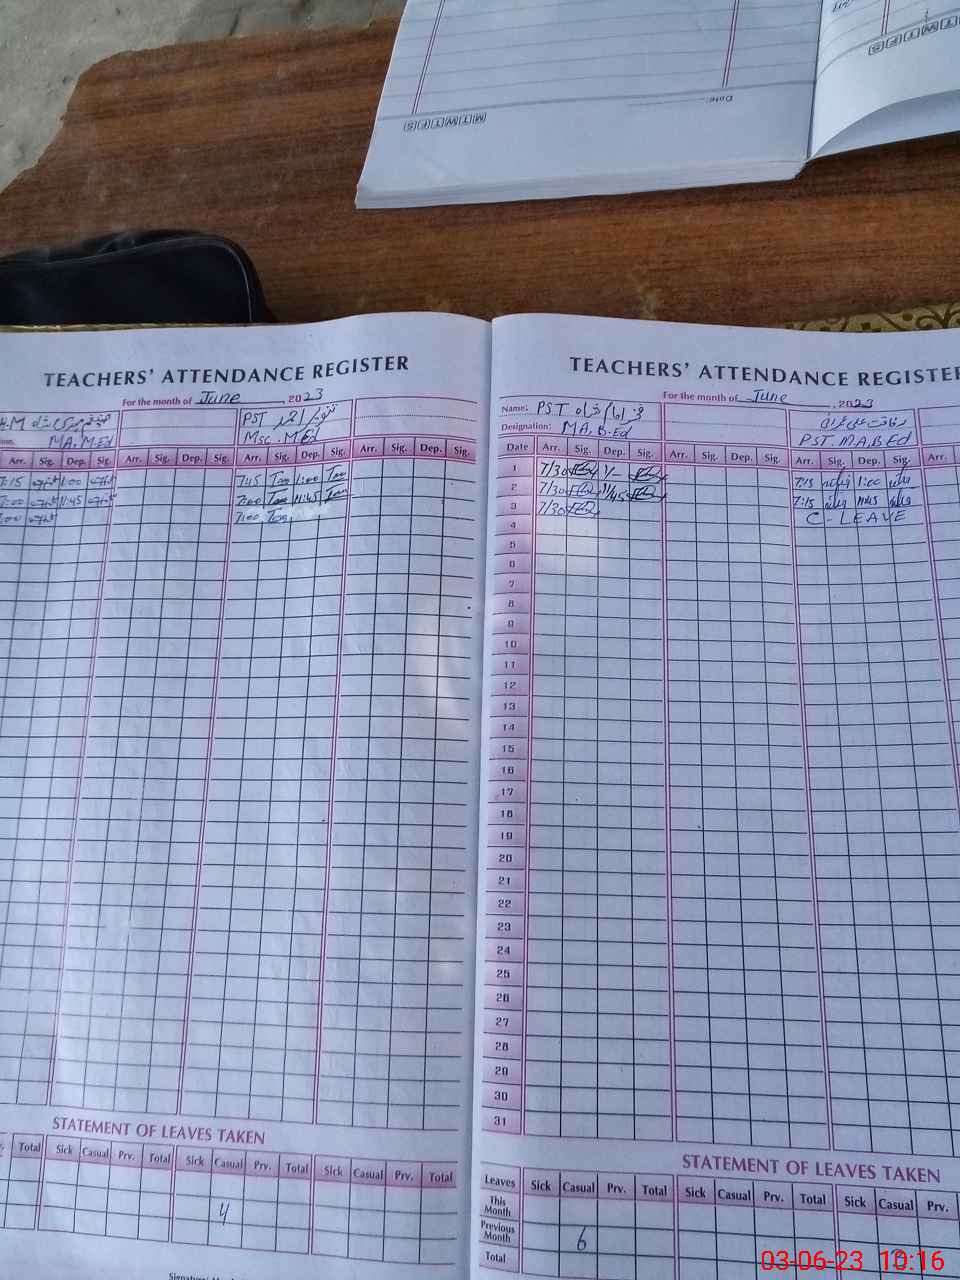 Date:
M T W T F S
M T W T F S
TEACHERS' ATTENDANCE REGISTER
For the month of June, 2023
H.M
PST تنویر احمد
MA. M.Ed
Msc. M.Ed
Arr. Sig. Dep. Sig. Arr. Sig. Dep. Sig. Arr. Sig. Dep. Sig. Arr. Sig. Dep. Sig.
7:15 1:00 7:45 1:00
7:00 11:45 7:00 11:45
7:00 7:00
STATEMENT OF LEAVES TAKEN
Total Sick Casual Prv. Total Sick Casual Prv. Total Sick Casual Prv. Total
4
TEACHERS' ATTENDANCE REGISTER
For the month of June, 2023
Name: PST
Designation: MA, B.Ed
PST MA, B.Ed
Date Arr. Sig. Dep. Sig. Arr. Sig. Dep. Sig. Arr. Sig. Dep. Sig. Arr.
1 7/30 1/- 7:15 1:00
2 7/30 11/45 7:15 11:45
3 7/30 C-LEAVE
4
5
6
7
8
9
10
11
12
13
14
15
16
17
18
19
20
21
22
23
24
25
26
27
28
29
30
31
STATEMENT OF LEAVES TAKEN
Leaves Sick Casual Prv. Total Sick Casual Prv. Total Sick Casual Prv.
This Month
Previous Month 6
Total
03-06-23 10:16